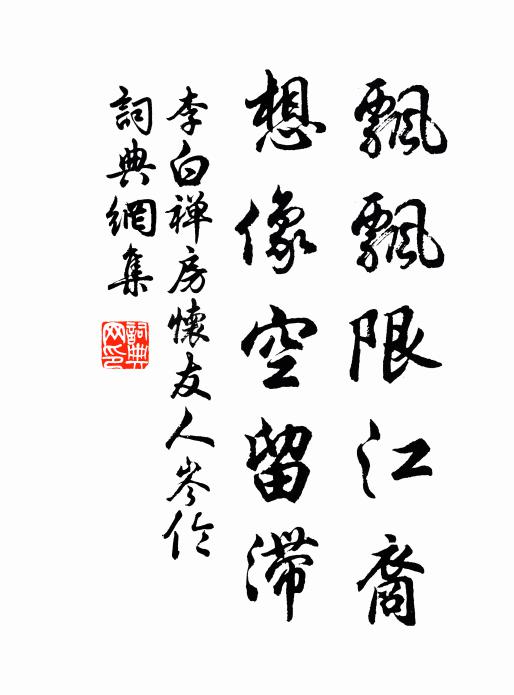 飄飄限江裔
想像空留滯
李白禅房懷友人岑伦
詞典網集
詞典网印